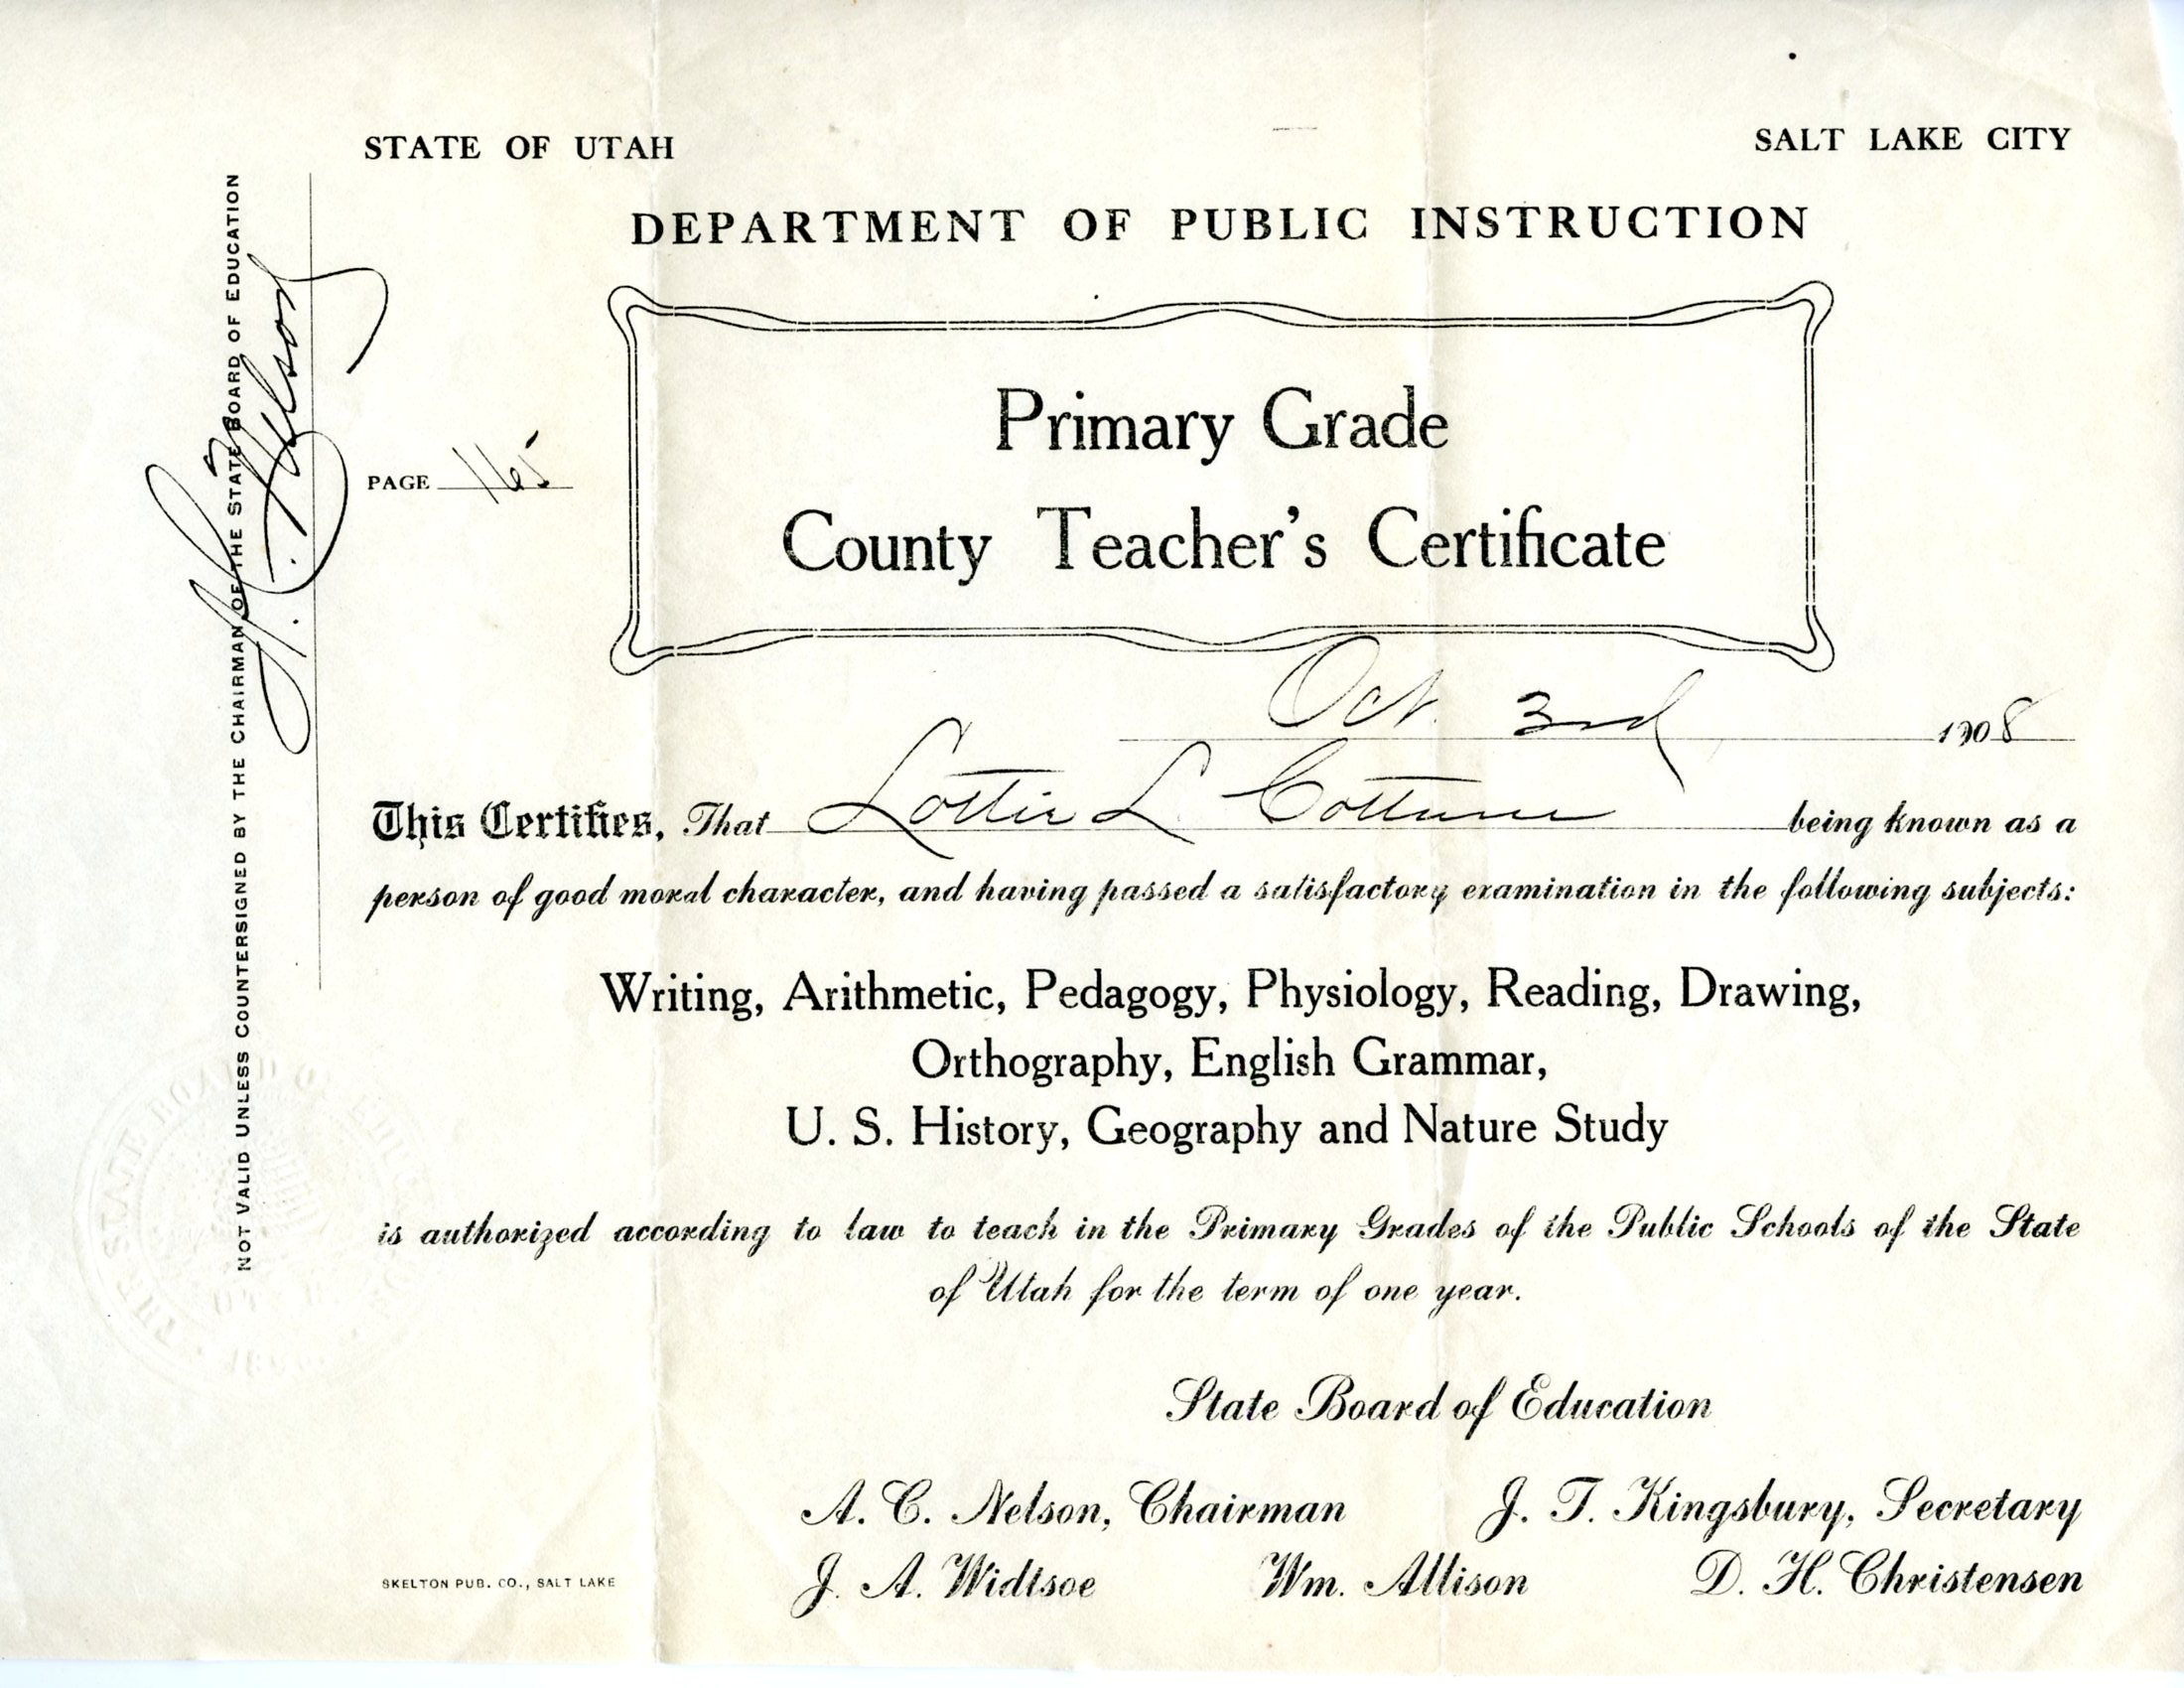 STATE OF UTAH
SALT LAKE CITY
DEPARTMENT OF PUBLIC INSTRUCTION
Primary Grade
County Teacher's Certificate
PAGE 165
Oct. 3rd 1908
This Certifies, That Lottie L being known as a
person of good moral character, and having passed a satisfactory examination in the following subjects:
Writing, Arithmetic, Pedagogy, Physiology, Reading, Drawing,
Orthography, English Grammar,
U. S. History, Geography and Nature Study
is authorized according to law to teach in the Primary Grades of the Public Schools of the State
of Utah for the term of one year.
State Board of Education
A. C. Nelson, Chairman
J. T. Kingsbury, Secretary
J. A. Widtsoe
Wm. Allison
D. H. Christensen
SKELTON PUB. CO., SALT LAKE
NOT VALID UNLESS COUNTERSIGNED BY THE CHAIRMAN OF THE STATE BOARD OF EDUCATION
A. C. Nelson